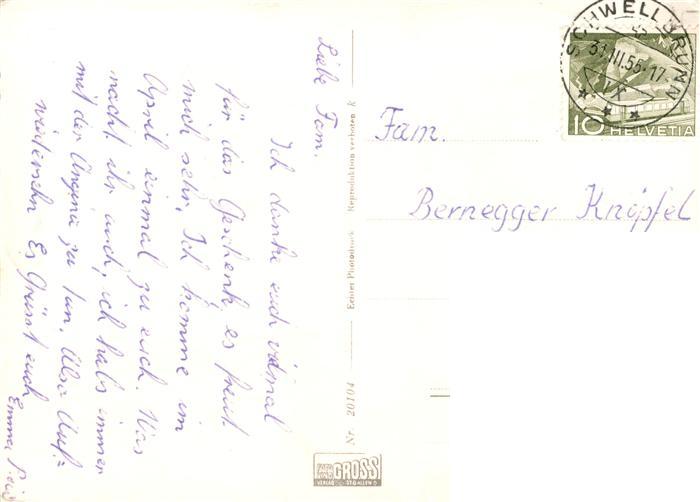 Liebe Fam.
Ich danke euch vilmal
für das Geschenk, es freut
mich sehr. Ich komme im
April einmal zu euch. Was
macht ihr auch, ich habs immer
mit der Angina zu tun. Also Auf=
wiedersehn Es Grüsst euch
Emma
Nr. 20104
Echter Photodruck
Reproduktion verboten
GROSS
VERLAG ST.GALLEN
SCHWELLBRUNN
31.III.55-17
10 HELVETIA
Fam.
Bernegger Knöpfel